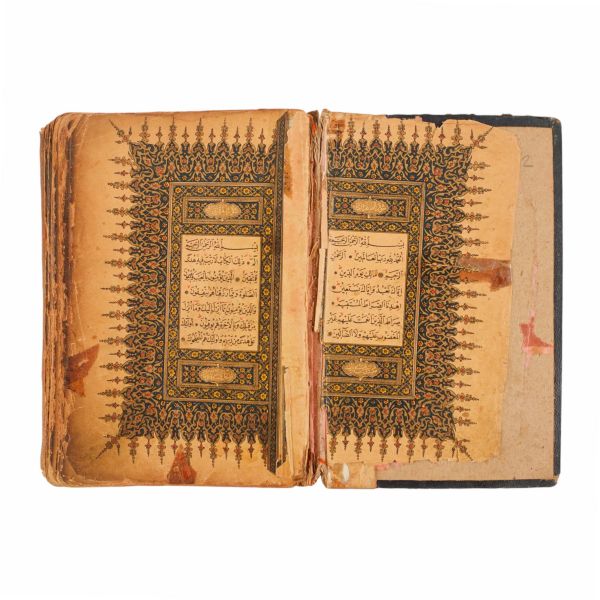 بسم الله الرحمن الرحيم
الحمد لله رب العالمين الرحمن
الرحيم مالك يوم الدين
اياك نعبد واياك نستعين
اهدنا الصراط المستقيم
صراط الذين انعمت عليهم غير
المغضوب عليهم ولا الضالين
بسم الله الرحمن الرحيم
الم ذلك الكتاب لا ريب فيه هدى
للمتقين الذين يؤمنون بالغيب ويقيمون
الصلوة ومما رزقناهم ينفقون
والذين يؤمنون بما انزل اليك وما انزل
من قبلك وبالاخرة هم يوقنون اولئك
على هدى من ربهم واولئك هم المفلحون
2